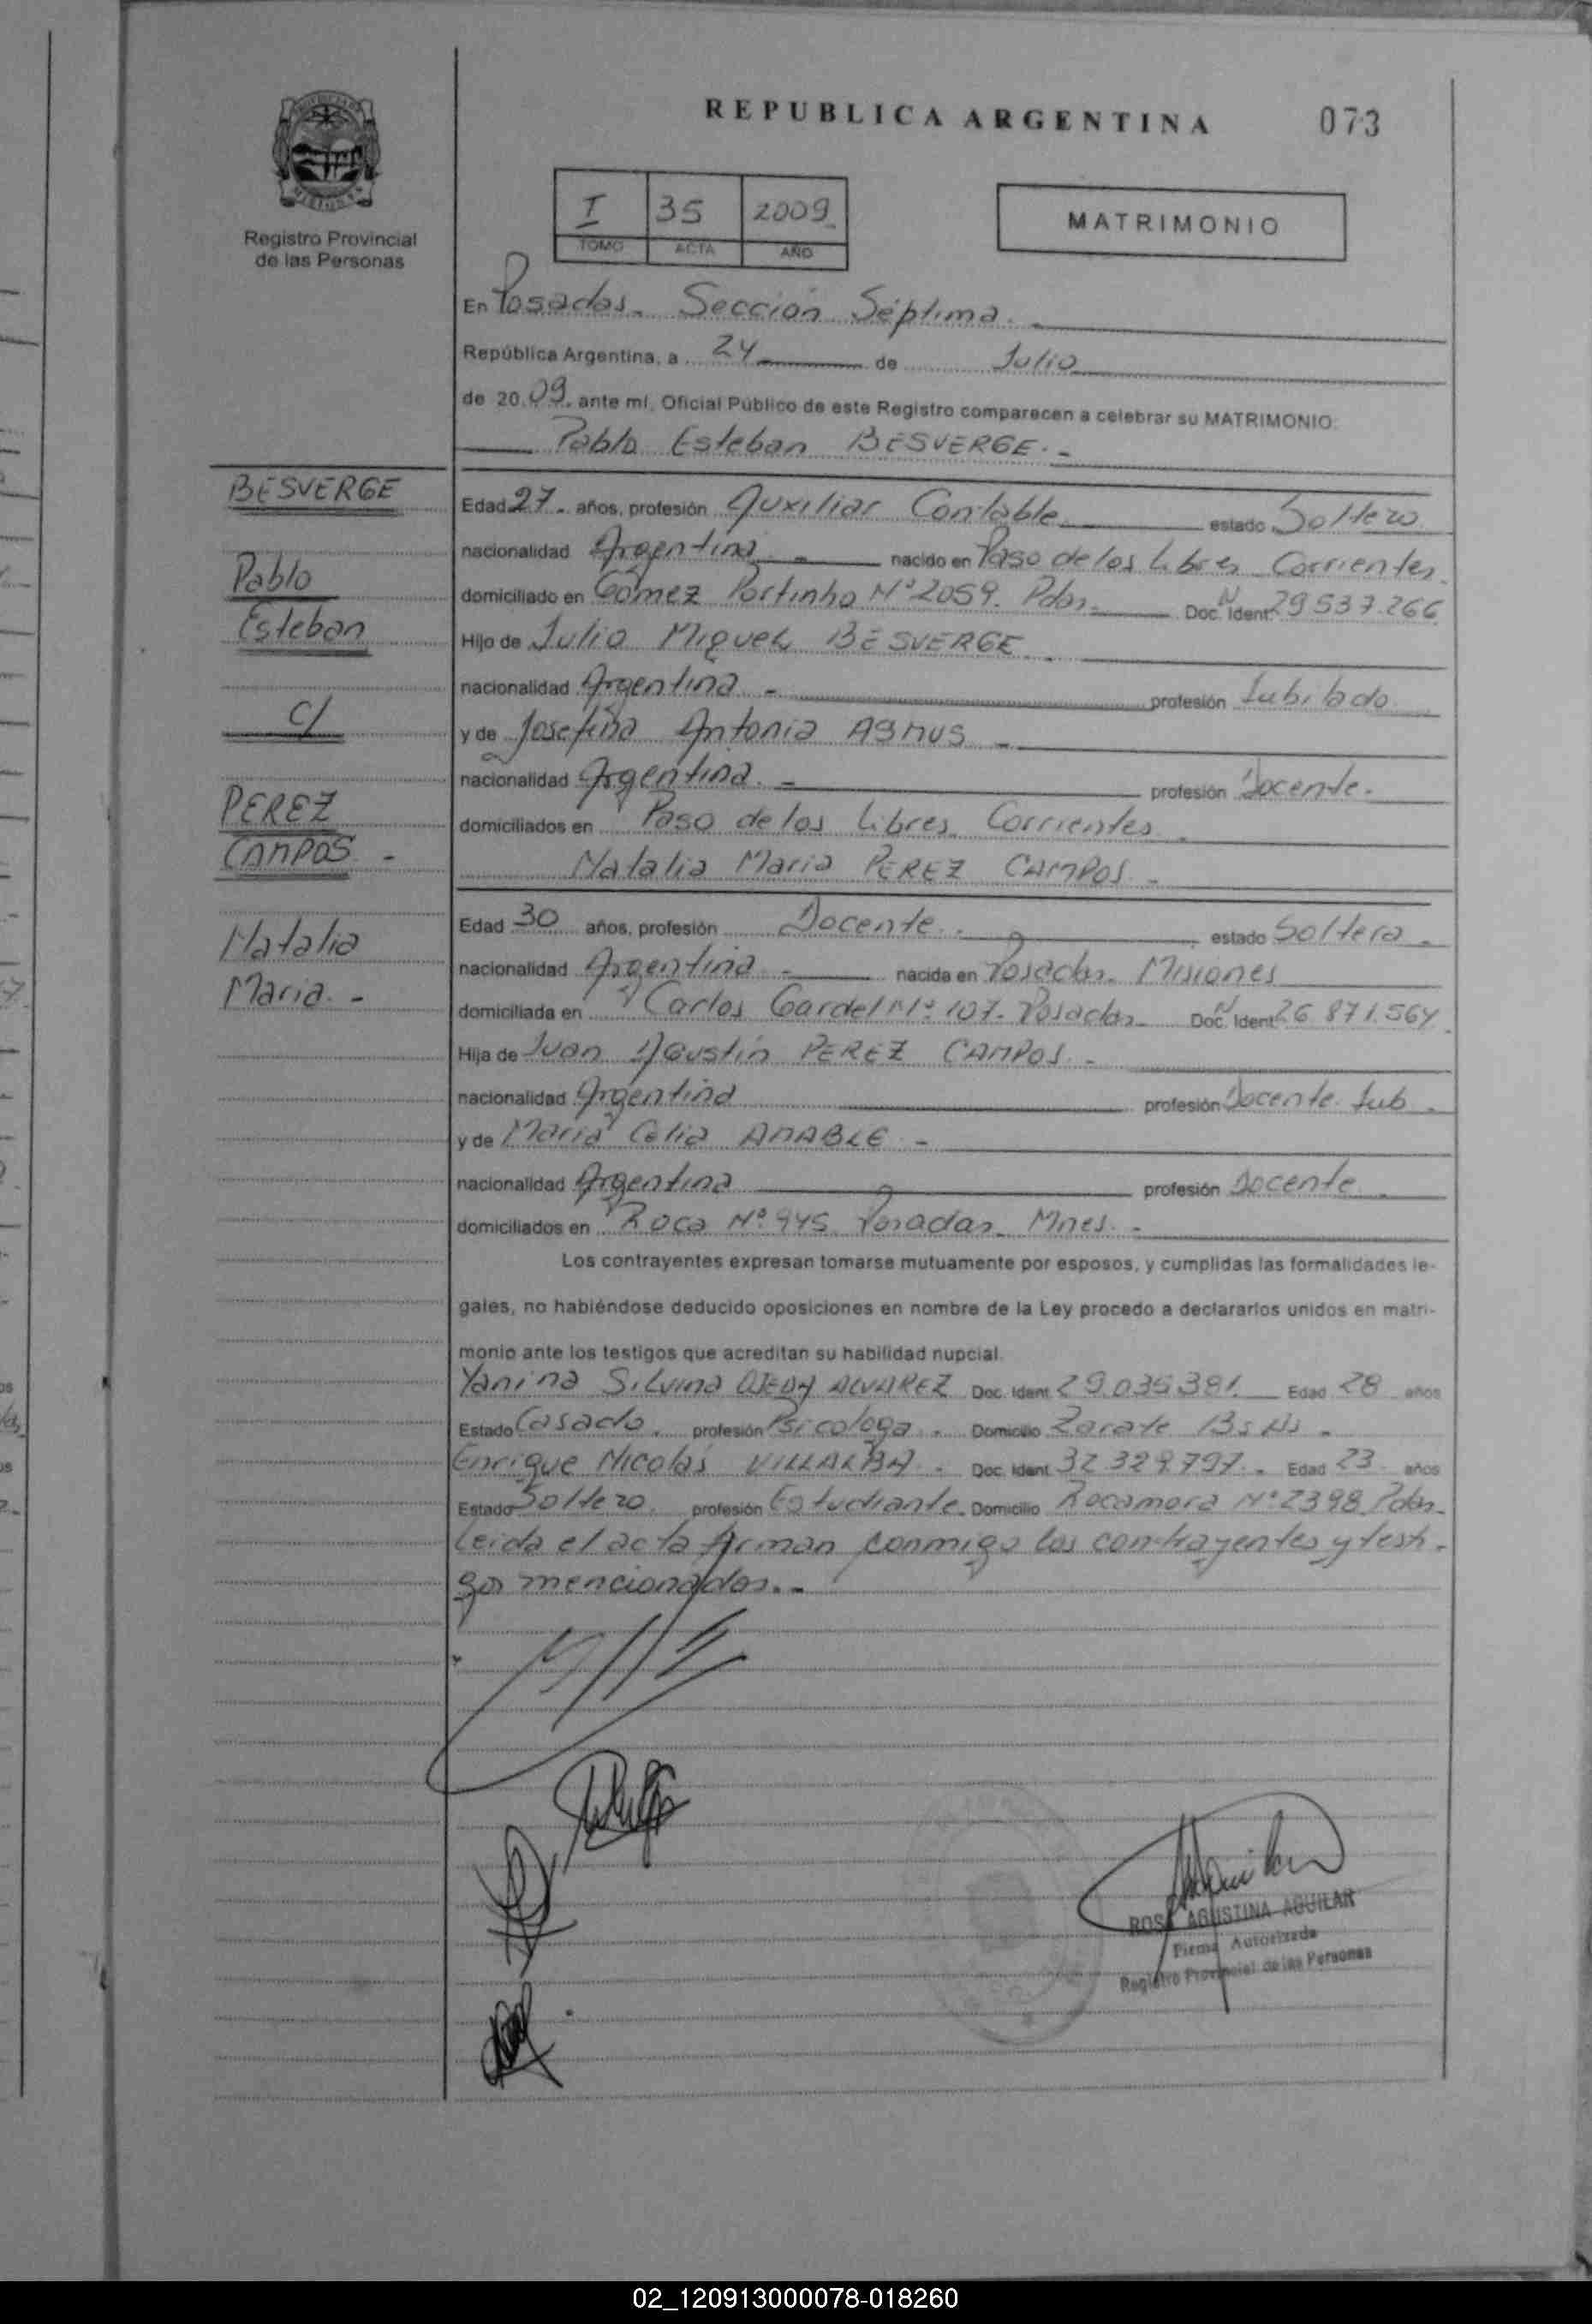 REPUBLICA ARGENTINA
073
Registro Provincial
de las Personas
I 35 2009
TOMO ACTA AÑO
MATRIMONIO
En Posadas. Sección Séptima.
República Argentina, a 24 de Julio
de 20 09. ante mí, Oficial Público de este Registro comparecen a celebrar su MATRIMONIO:
Pablo Esteban BESVERGE.-
BESVERGE
Pablo
Esteban
c/
PEREZ
CAMPOS -
Natalia
Maria. -
Edad 27. años, profesión Auxiliar Contable estado Soltero
nacionalidad Argentina - nacido en Paso de los Libres Corrientes.
domiciliado en Gómez Portinho Nº 2059. Pdas. Doc. N Ident. 29 537.266
Hijo de Julio Miguel BESVERGE.
nacionalidad Argentina - profesión Jubilado.
y de Josefina Antonia AGMUS -
nacionalidad Argentina. - profesión Docente.
domiciliados en Paso de los Libres Corrientes.
Natalia Maria PEREZ CAMPOS -
Edad 30 años, profesión Docente. estado Soltera.
nacionalidad Argentina - nacida en Posadas. Misiones
domiciliada en Carlos Gardel Nº 107. Posadas Doc. N Ident. 26 871.564
Hija de Juan Agustín PEREZ CAMPOS. -
nacionalidad Argentina profesión Docente Jub.
y de María Celia AMABLE. -
nacionalidad Argentina profesión Docente.
domiciliados en Roca Nº 945 Posadas Mnes. -
Los contrayentes expresan tomarse mutuamente por esposos, y cumplidas las formalidades le-
gales, no habiéndose deducido oposiciones en nombre de la Ley procedo a declararlos unidos en matri-
monio ante los testigos que acreditan su habilidad nupcial.
Yanina Silvina OJEDA ALVAREZ Doc. Ident. 29.035.381. Edad 28 años
Estado Casado. profesión Psicologa. Domicilio Zarate Bs As.
Enrique Nicolás VILLALBA. Doc. Ident. 32 329.797. Edad 23 años
Estado Soltero. profesión Estudiante. Domicilio Rocamora Nº 2398 Pdas.
Leida el acta firman conmigo los contrayentes y testi-
gos mencionados.-
ROSA AGUSTINA AGUILAR
Firma Autorizada
Registro Provincial de las Personas
02_120913000078-018260